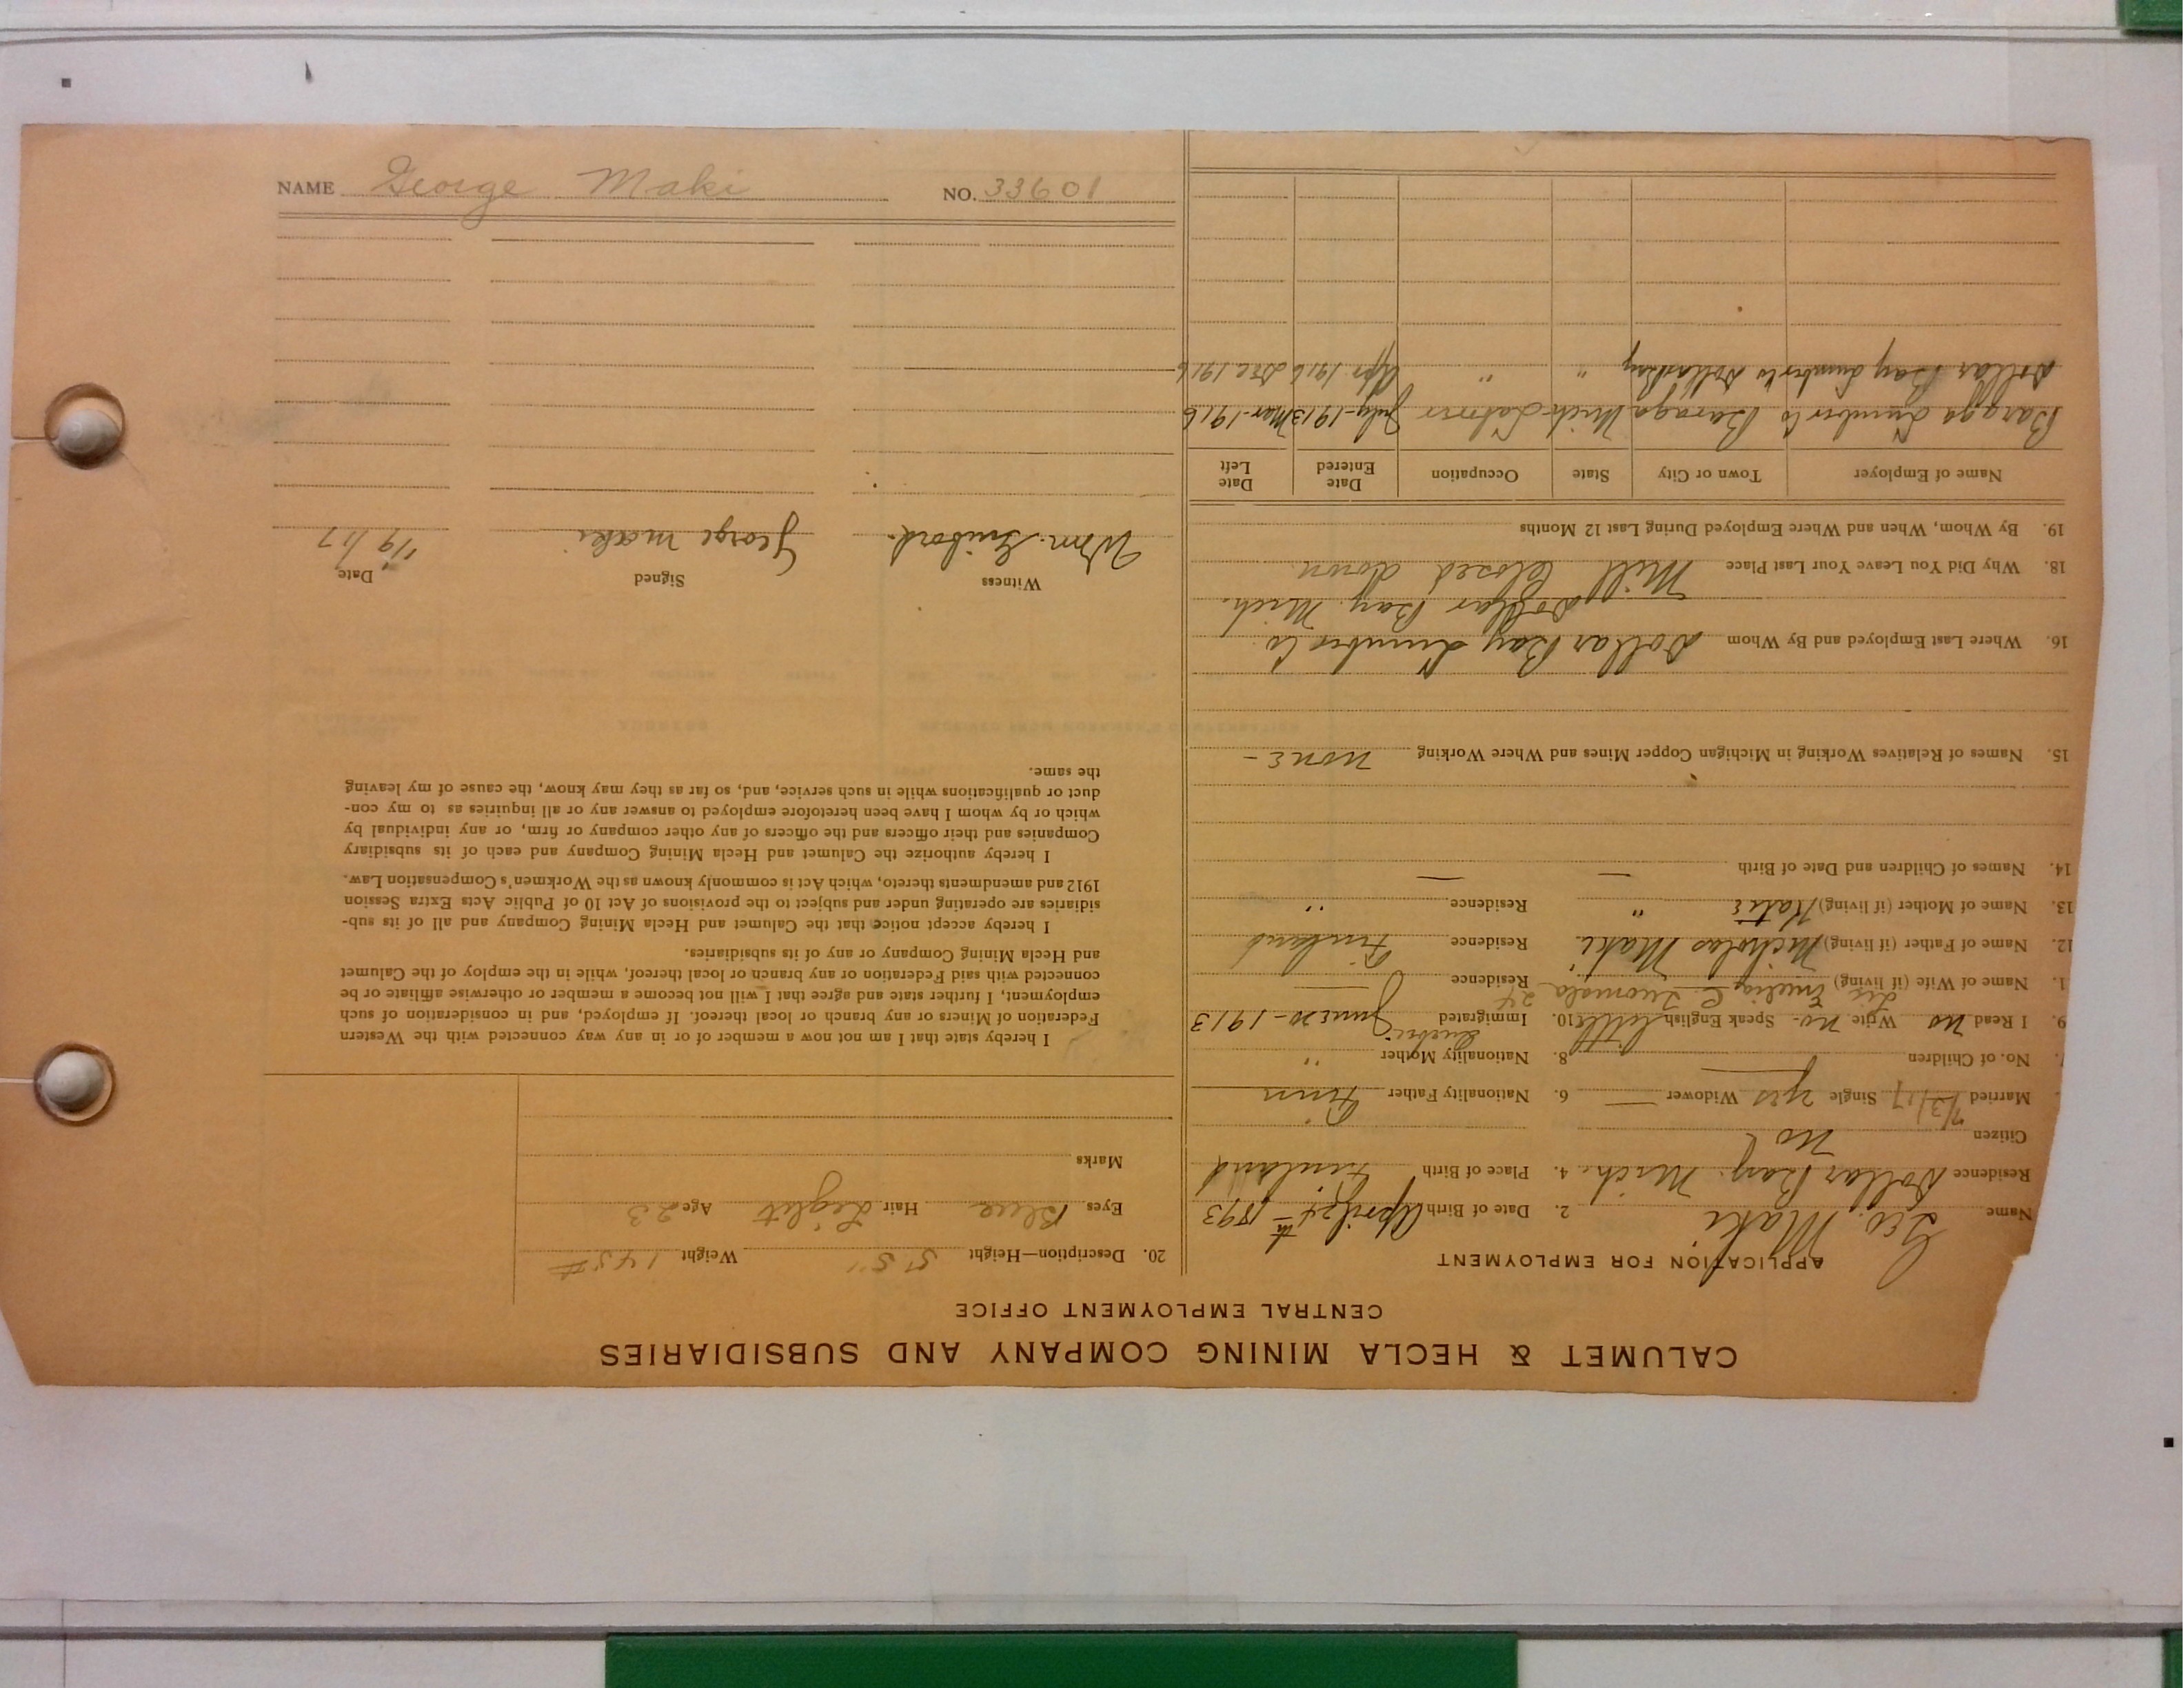 CALUMET & HECLA MINING COMPANY AND SUBSIDIARIES
CENTRAL EMPLOYMENT OFFICE
APPLICATION FOR EMPLOYMENT
Name Geo. Maki 2. Date of Birth April 24th 1893
Residence Dollar Bay. Mich. 4. Place of Birth Finland
Citizen No
Married 7/3/17 Single yes Widower — 6. Nationality Father Finn
No. of Children — 8. Nationality Mother "
9. I Read No Write No- Speak English little 10. Immigrated June 20 - 1913
1. Name of Wife (if living) Emelia Residence
12. Name of Father (if living) Nicholas Maki. Residence Finland
13. Name of Mother (if living) Kate " Residence "
14. Names of Children and Date of Birth — —
15. Names of Relatives Working in Michigan Copper Mines and Where Working None -
16. Where Last Employed and By Whom Dollar Bay Lumber Co.
Dollar Bay. Mich.
18. Why Did You Leave Your Last Place Mill Closed down
19. By Whom, When and Where Employed During Last 12 Months
Name of Employer Town or City State Occupation Date Entered Date Left
Baraga Lumber Co Baraga Mich Labor July-1913 Mar-1916
Dollar Bay Lumber Co Dollar Bay " " Apr. 1916 Dec 1916
20. Description—Height 5' 5" Weight 145#
Eyes Blue Hair Light Age 23
Marks
I hereby state that I am not now a member of or in any way connected with the Western
Federation of Miners or any branch or local thereof. If employed, and in consideration of such
employment, I further state and agree that I will not become a member or otherwise affiliate or be
connected with said Federation or any branch or local thereof, while in the employ of the Calumet
and Hecla Mining Company or any of its subsidiaries.
I hereby accept notice that the Calumet and Hecla Mining Company and all of its sub-
sidiaries are operating under and subject to the provisions of Act 10 of Public Acts Extra Session
1912 and amendments thereto, which Act is commonly known as the Workmen's Compensation Law.
I hereby authorize the Calumet and Hecla Mining Company and each of its subsidiary
Companies and their officers and the officers of any other company or firm, or any individual by
which or by whom I have been heretofore employed to answer any or all inquiries as to my con-
duct or qualifications while in such service, and, so far as they may know, the cause of my leaving
the same.
Witness Signed Date
Wm. Guibord. George Maki 1/9/17
NAME George Maki NO. 33601